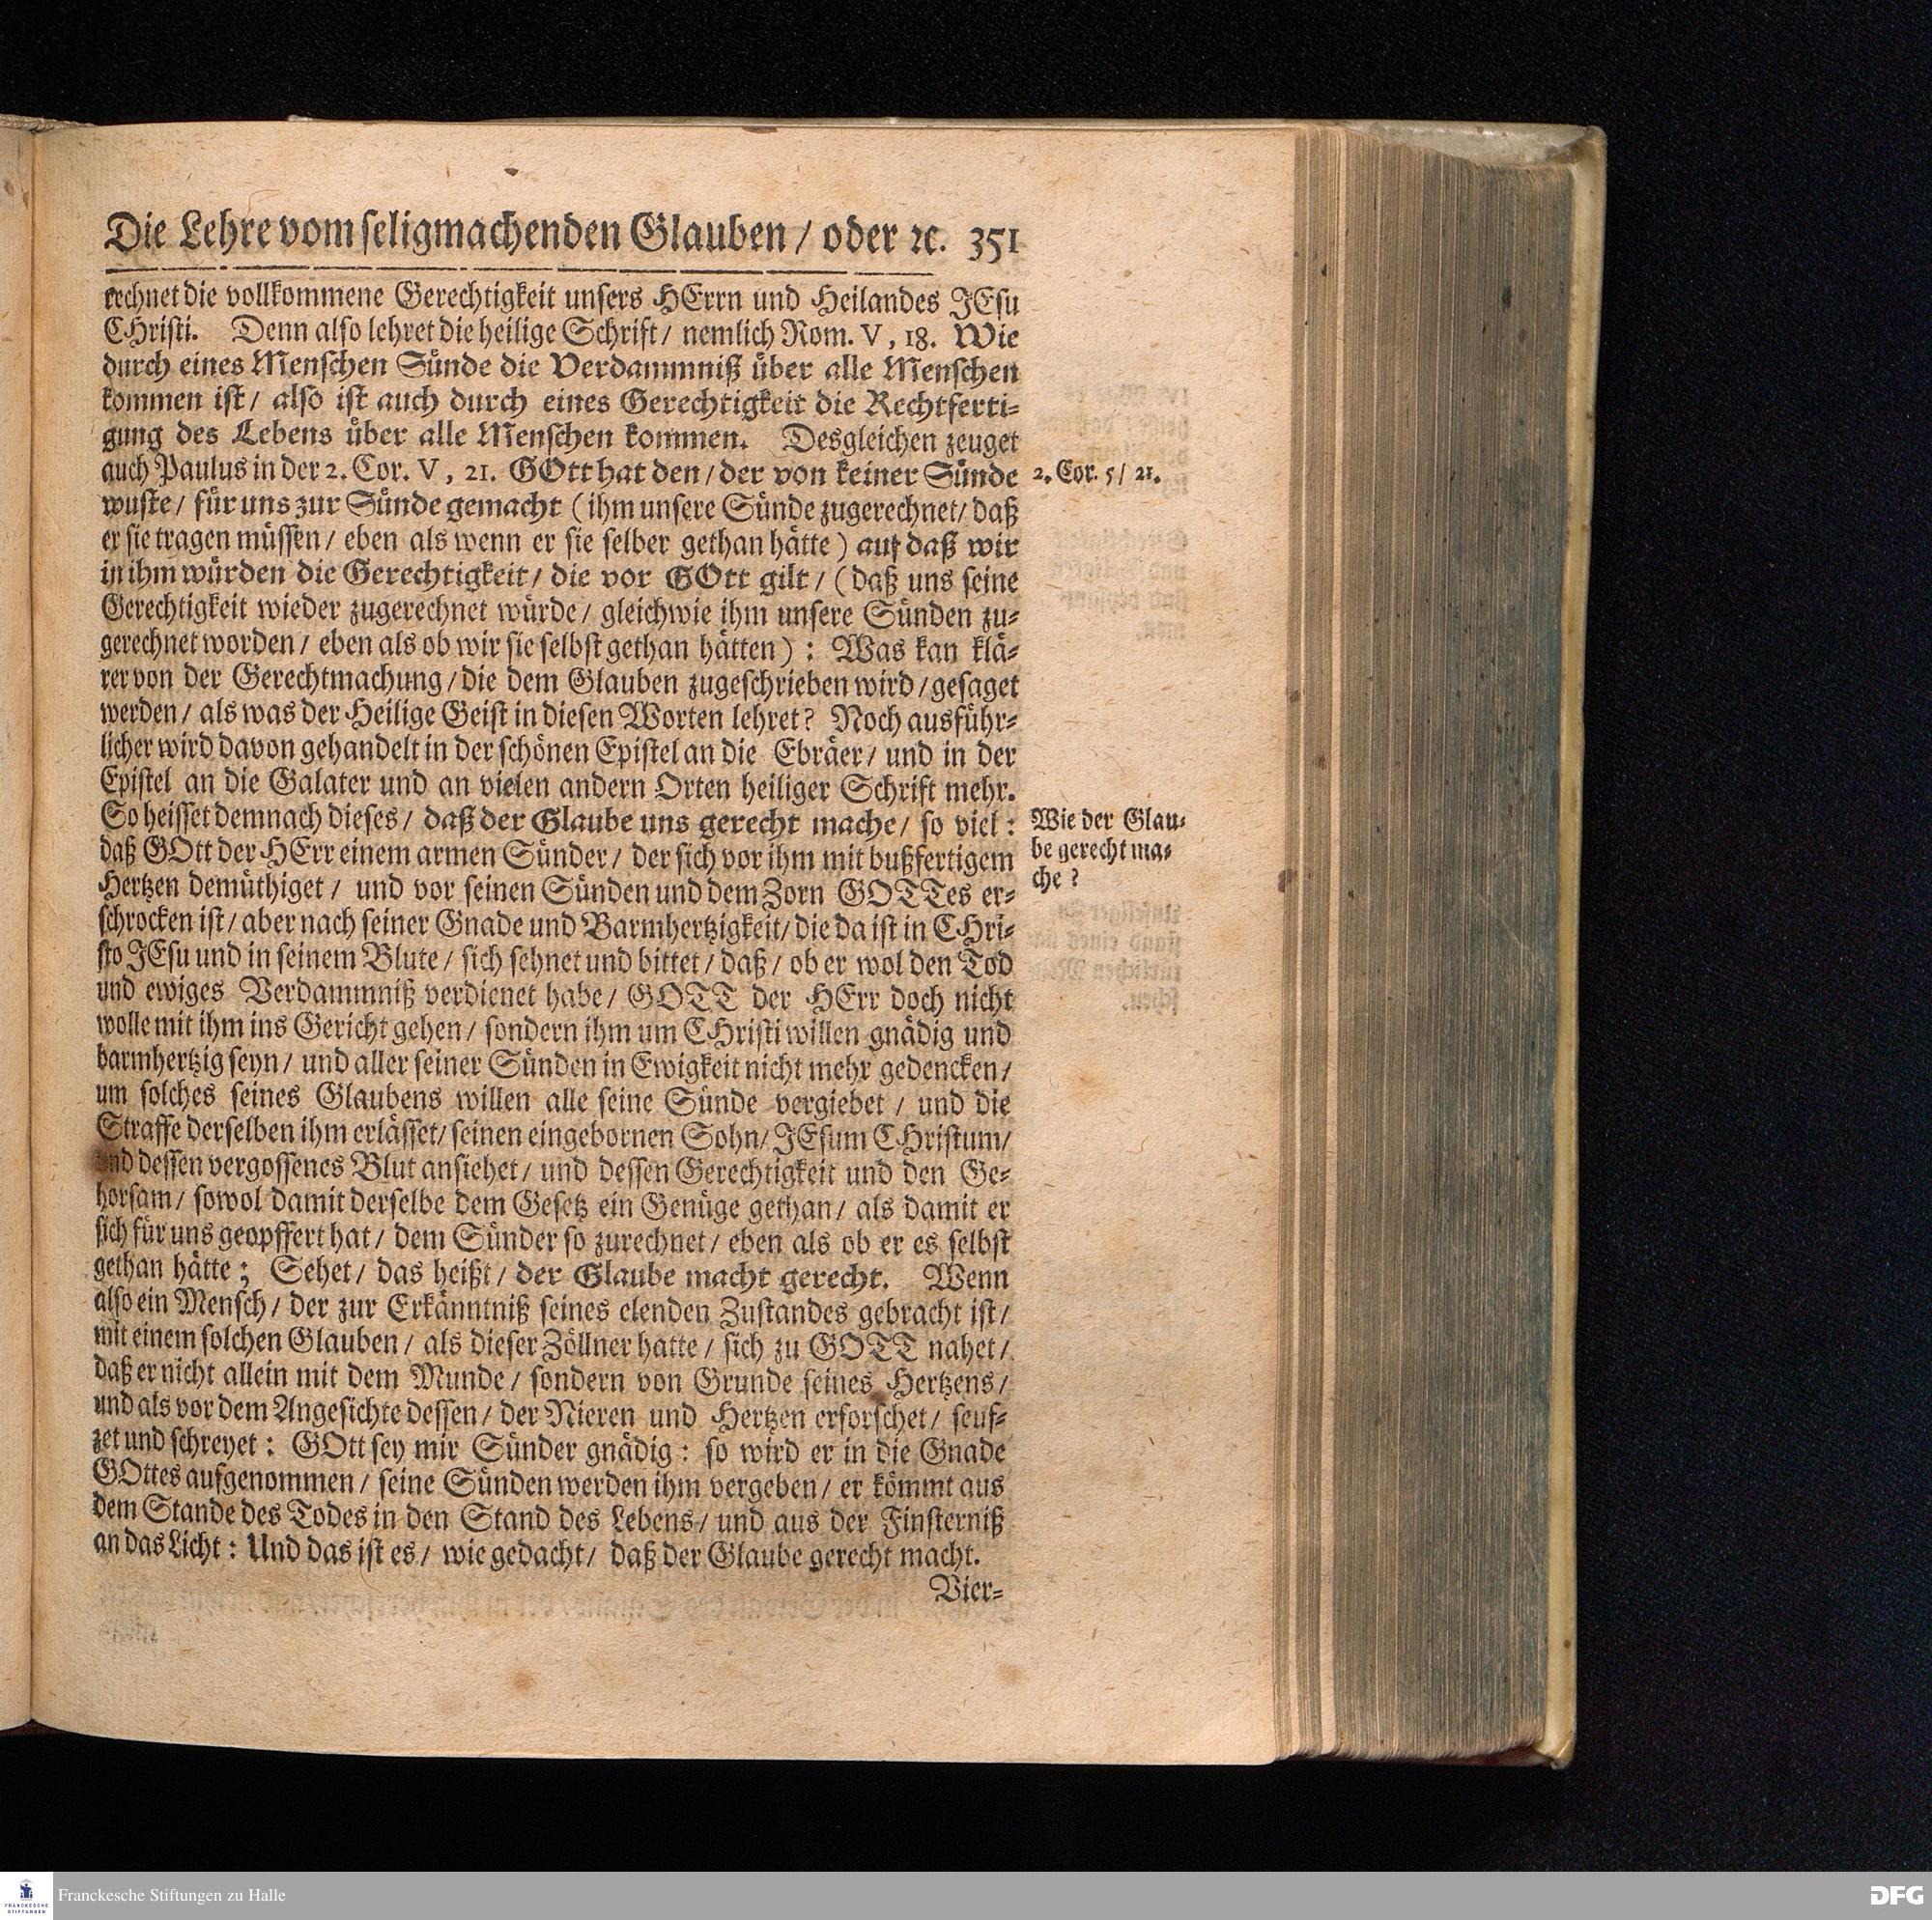 Die Lehre vom seligmachenden Glauben / oder ꝛc. 351
rechnet die vollkommene Gerechtigkeit unsers HErrn und Heilandes JEsu
CHristi. Denn also lehret die heilige Schrift / nemlich Rom. V, 18. Wie
durch eines Menschen Sünde die Verdammniß über alle Menschen
kommen ist / also ist auch durch eines Gerechtigkeit die Rechtferti-
gung des Lebens über alle Menschen kommen. Desgleichen zeuget
auch Paulus in der 2. Cor. V, 21. GOtt hat den / der von keiner Sünde
2. Cor. 5 / 21.
wuste / für uns zur Sünde gemacht (ihm unsere Sünde zugerechnet / daß
er sie tragen müssen / eben als wenn er sie selber gethan hätte) auf daß wir
in ihm würden die Gerechtigkeit / die vor GOtt gilt / (daß uns seine
Gerechtigkeit wieder zugerechnet würde / gleichwie ihm unsere Sünden zu-
gerechnet worden / eben als ob wir sie selbst gethan hätten) : Was kan klä-
rer von der Gerechtmachung / die dem Glauben zugeschrieben wird / gesaget
werden / als was der Heilige Geist in diesen Worten lehret? Noch ausführ-
licher wird davon gehandelt in der schönen Epistel an die Ebräer / und in der
Epistel an die Galater und an vielen andern Orten heiliger Schrift mehr.
So heisset demnach dieses / daß der Glaube uns gerecht mache / so viel :
Wie der Glau-
be gerecht ma-
che ?
daß GOtt der HErr einem armen Sünder / der sich vor ihm mit bußfertigem
Hertzen demüthiget / und vor seinen Sünden und dem Zorn GOTTes er-
schrocken ist / aber nach seiner Gnade und Barmhertzigkeit / die da ist in CHri-
sto JEsu und in seinem Blute / sich sehnet und bittet / daß / ob er wol den Tod
und ewiges Verdammniß verdienet habe / GOTT der HErr doch nicht
wolle mit ihm ins Gericht gehen / sondern ihm um CHristi willen gnädig und
barmhertzig seyn / und aller seiner Sünden in Ewigkeit nicht mehr gedencken /
um solches seines Glaubens willen alle seine Sünde vergiebet / und die
Straffe derselben ihm erlässet / seinen eingebornen Sohn / JEsum CHristum /
und dessen vergossenes Blut ansiehet / und dessen Gerechtigkeit und den Ge-
horsam / sowol damit derselbe dem Gesetz ein Genüge gethan / als damit er
sich für uns geopffert hat / dem Sünder so zurechnet / eben als ob er es selbst
gethan hätte ; Sehet / das heißt / der Glaube macht gerecht. Wenn
also ein Mensch / der zur Erkänntniß seines elenden Zustandes gebracht ist /
mit einem solchen Glauben / als dieser Zöllner hatte / sich zu GOTT nahet /
daß er nicht allein mit dem Munde / sondern von Grunde seines Hertzens /
und als vor dem Angesichte dessen / der Nieren und Hertzen erforschet / seuf-
zet und schreyet : GOtt sey mir Sünder gnädig : so wird er in die Gnade
GOttes aufgenommen / seine Sünden werden ihm vergeben / er kömmt aus
dem Stande des Todes in den Stand des Lebens / und aus der Finsterniß
an das Licht : Und das ist es / wie gedacht / daß der Glaube gerecht macht.
Vier-
FRANCKESCHE
STIFTUNGEN
Franckesche Stiftungen zu Halle
DFG